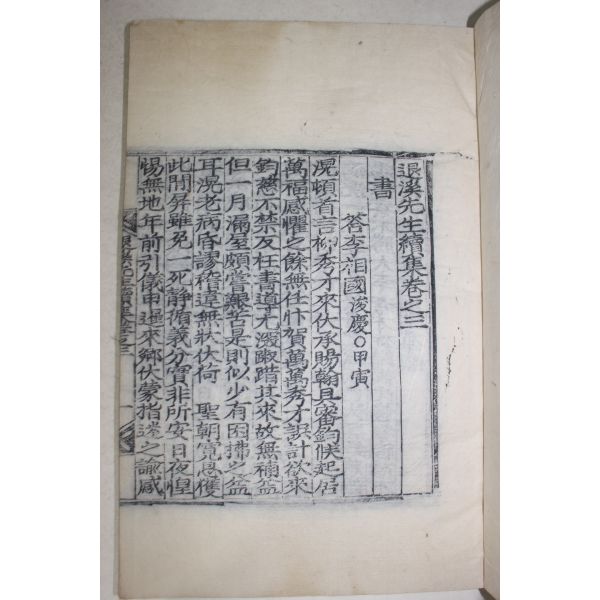 退溪先生續集卷之三
書
答李相國 浚慶○甲寅
滉頓首言柳秀才來伏承賜翰具審鈞候起居
萬福感懼之餘無任忭賀萬萬秀才誤計欲來
鈞慈不禁反枉書導尤潑踧踖其來故無補益
但一月漏屋頗嘗艱苦是則似少有困拂之益
耳滉老病昏謬稽違無狀伏荷 聖朝寬恩獲
此閒屏雖免一死靜循義分實非所安日夜惶
惕無地年前引儀申暹來鄉伏蒙指迷之諭感
退溪先生續集卷之三